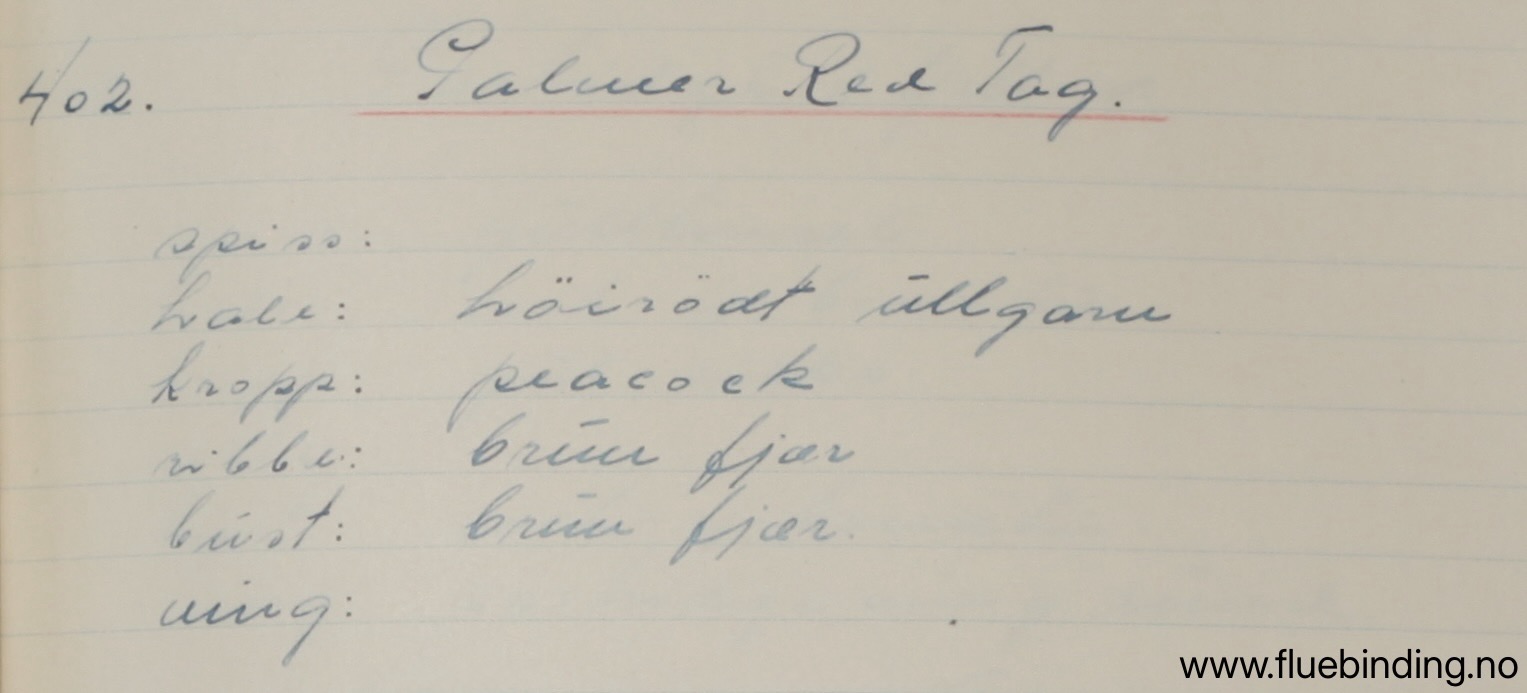 402. Palmer Red Tag.
spiss:
hale: höirödt ullgarn
kropp: peacock
ribbe: brun fjær
bust: brun fjær.
ving:
www.fluebinding.no